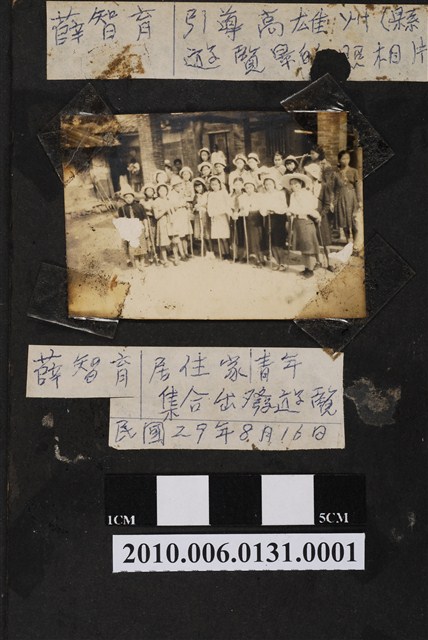 薛智育 引導高雄州(縣
遊覽畢的照相片
薛智育 居住家青年
集合出發遊覽
民國29年8月16日
1CM 5CM
2010.006.0131.0001